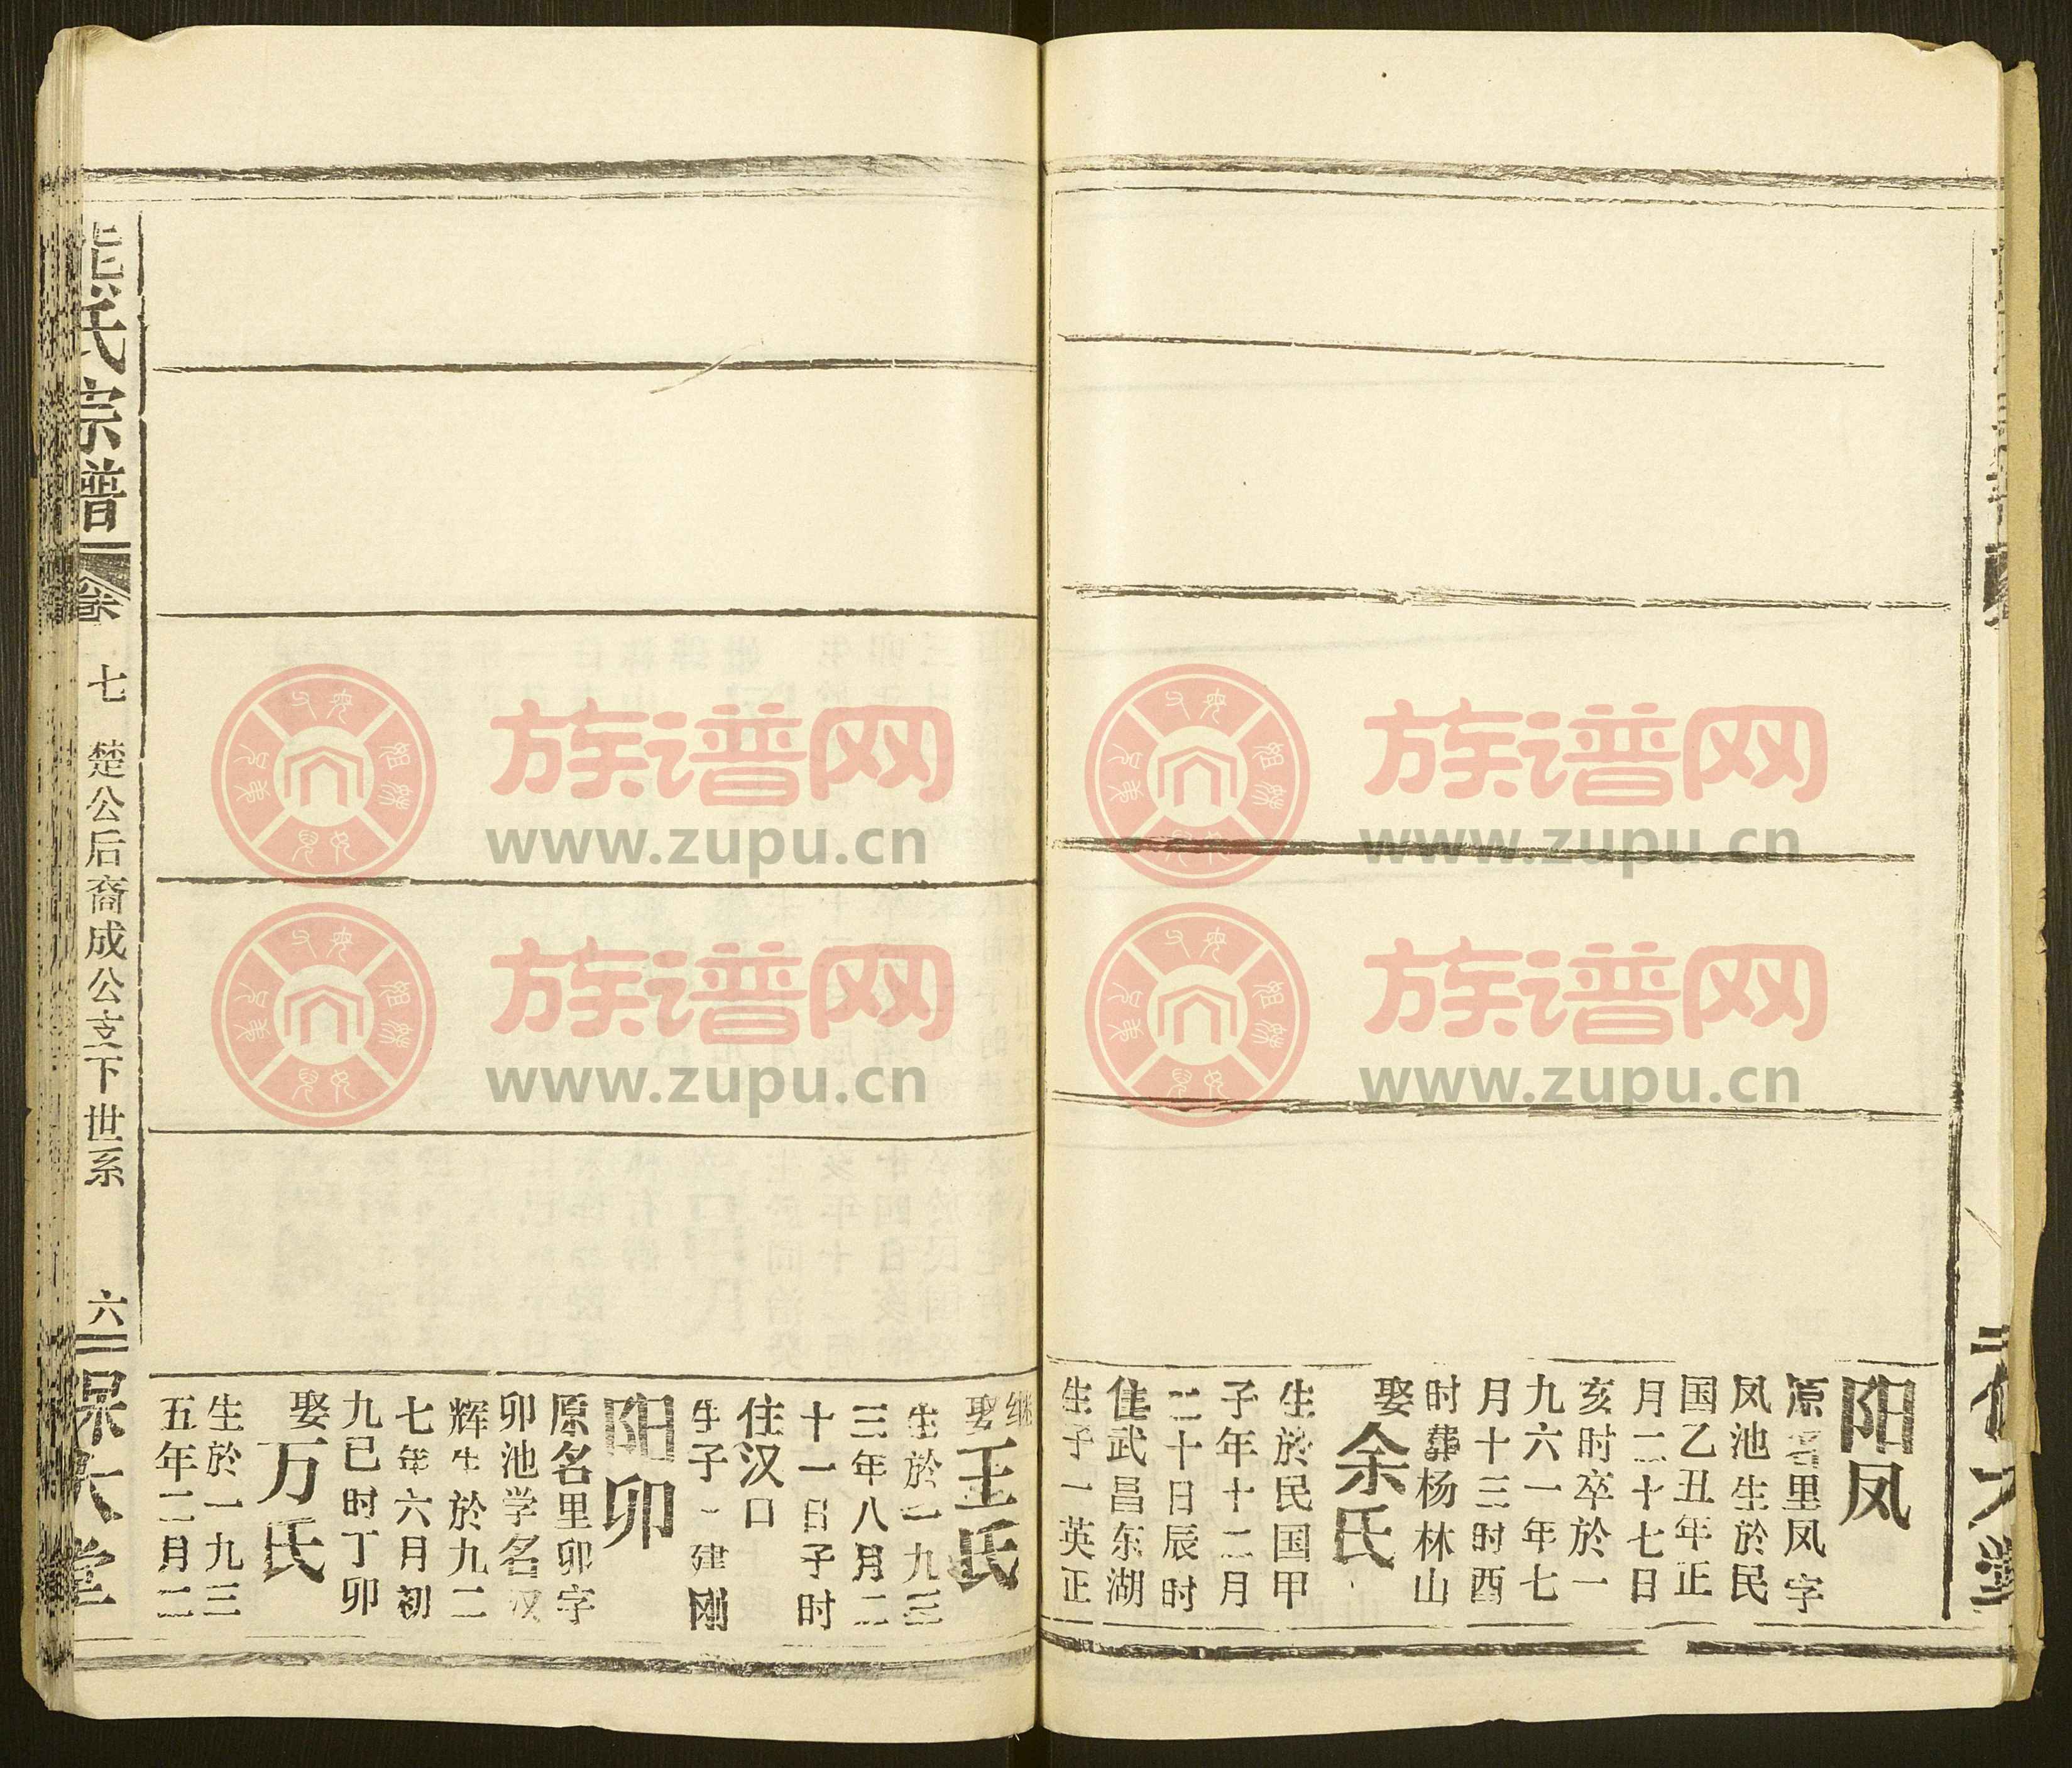 阳凤
原名里凤字
凤池生於民
国乙丑年正
月二十七日
亥时卒於一
九六一年七
月十三时酉
时葬杨林山
娶余氏
生於民国甲
子年十二月
二十日辰时
住武昌东湖
生子一英正
继娶王氏
生於一九三
三年八月二
十一日子时
住汉口
生子一建刚
阳卯
原名里卯字
卯池学名汉
辉生於九二
七年六月初
九巳时丁卯
娶万氏
生於一九三
五年二月二
熊氏宗谱
卷七
楚公后裔成公支下世系
六
保大堂
族谱网
www.zupu.cn
族谱网
www.zupu.cn
族谱网
www.zupu.cn
族谱网
www.zupu.cn